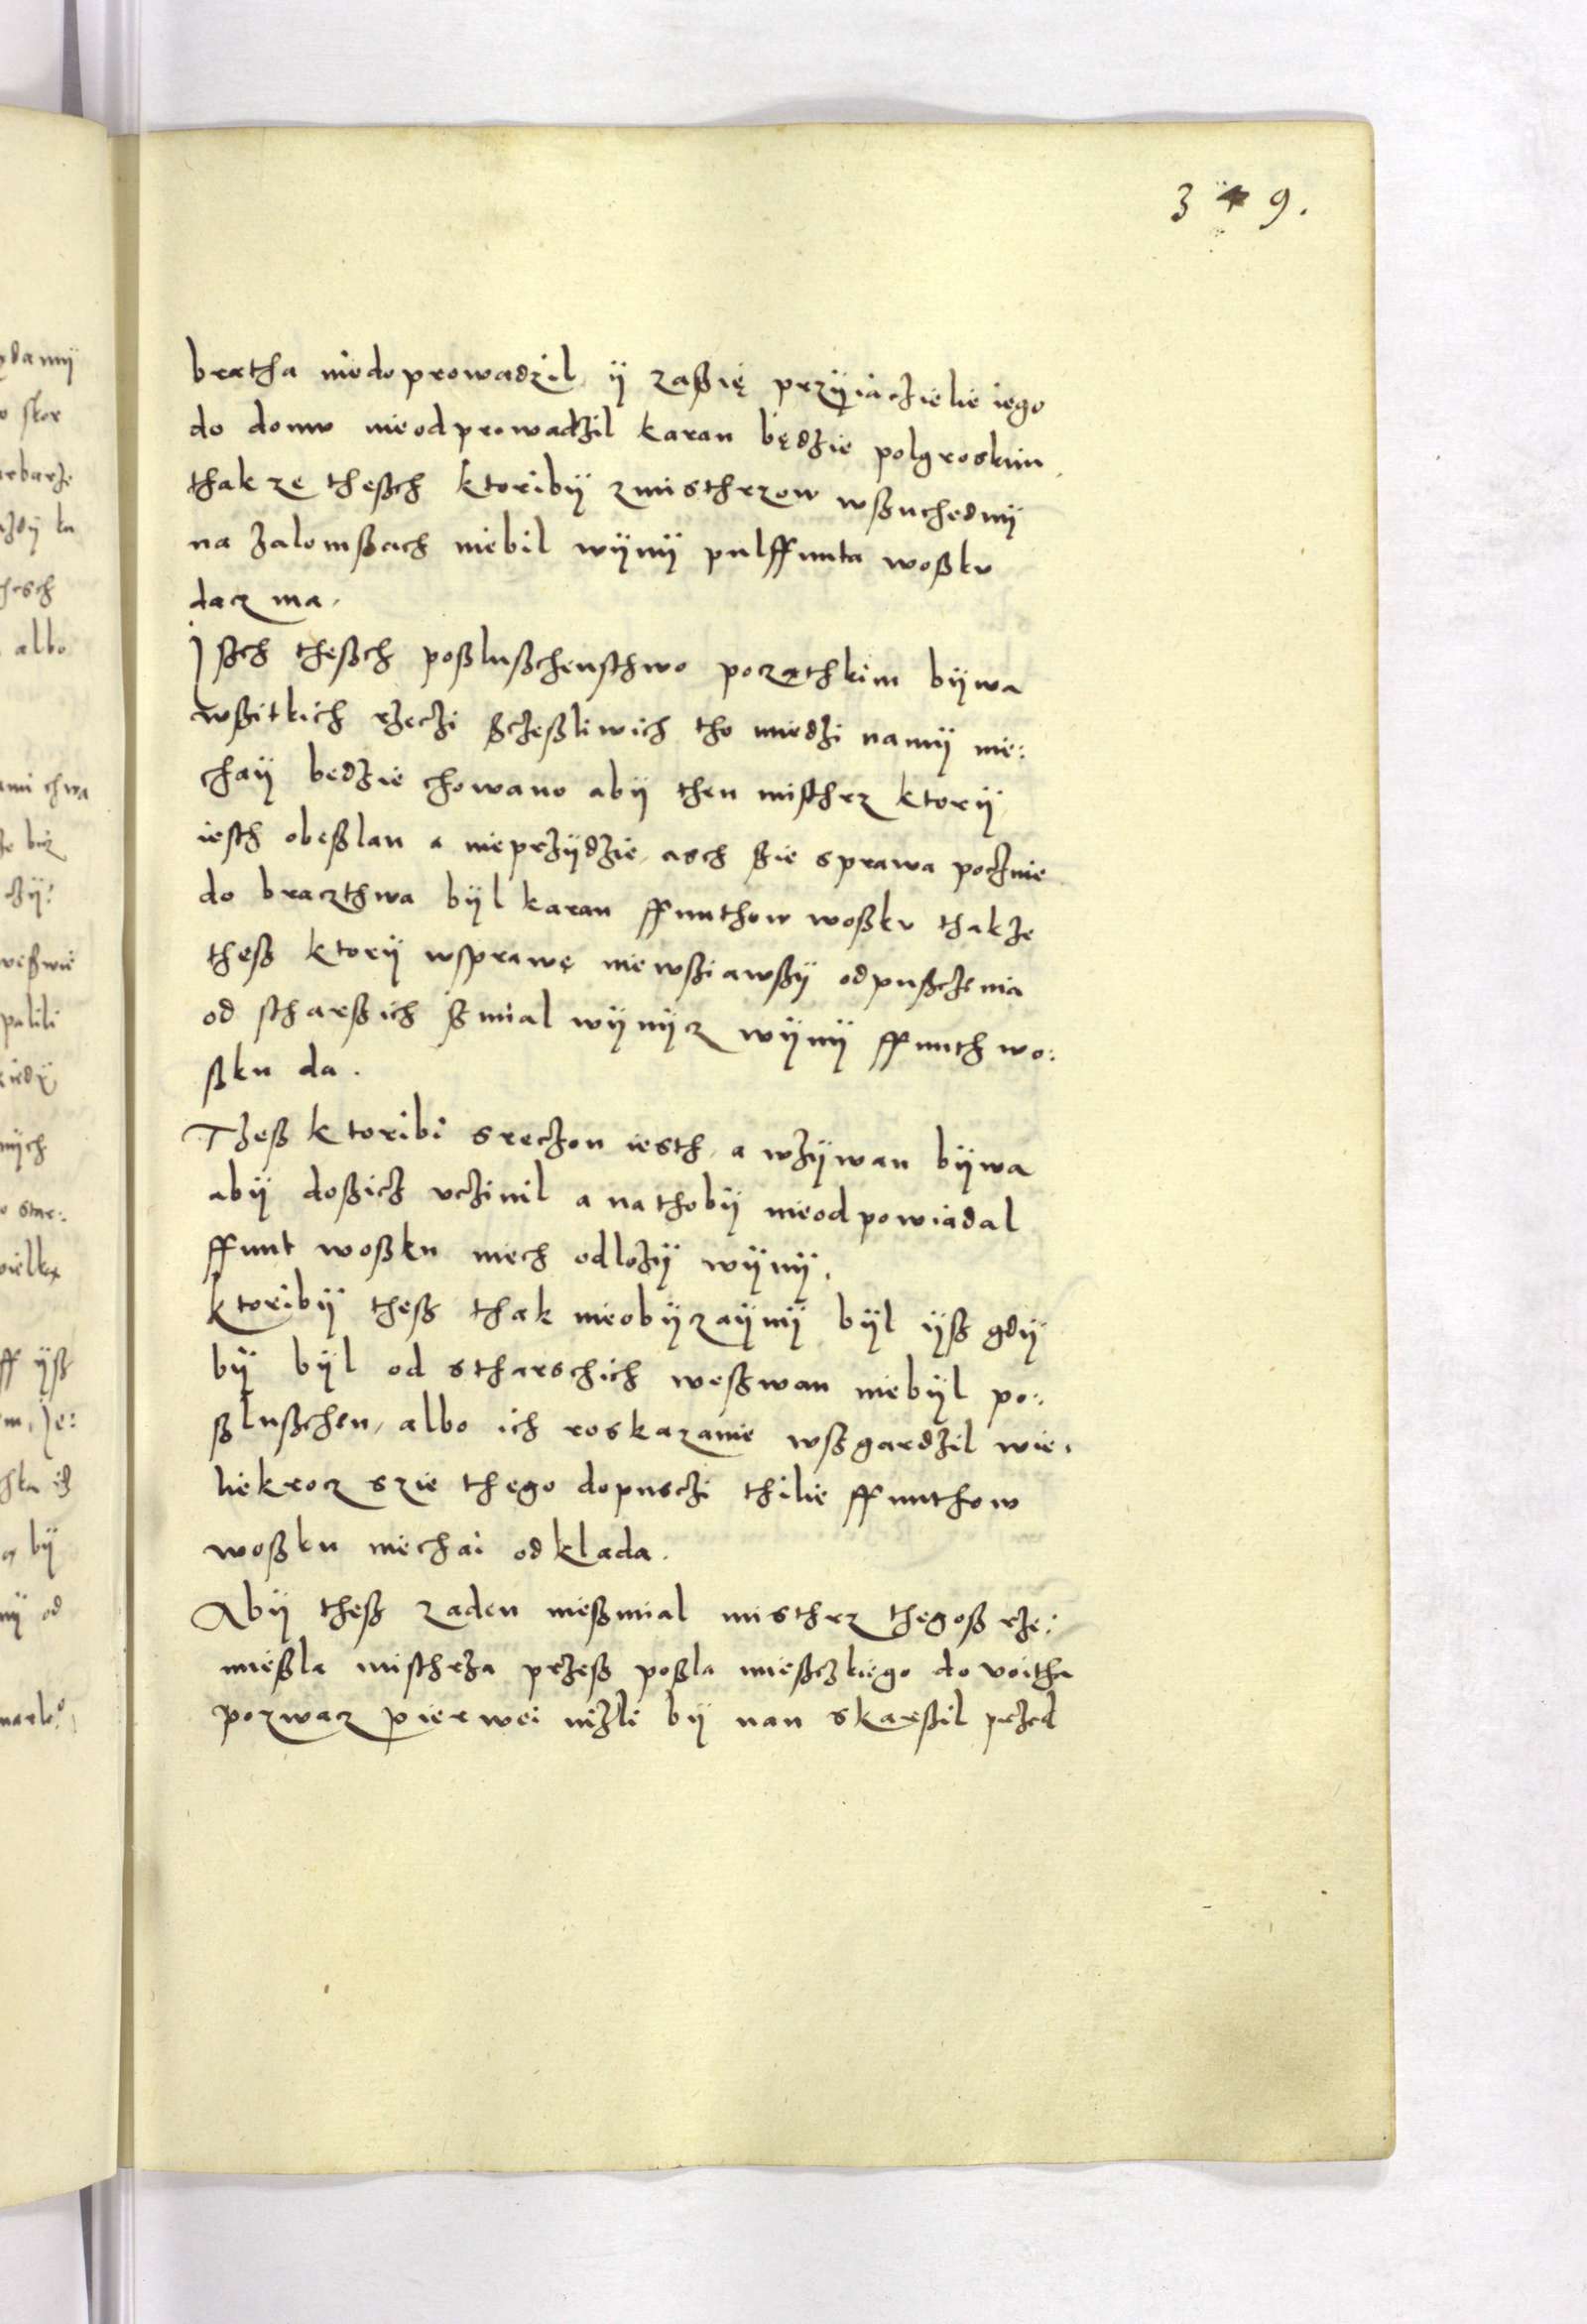 349.
bratha niedoprowadzil ÿ zaßię przÿiaczielie iego
do domv nieodprowadzil karan będzie polgroskim
thak ze theßch ktoribÿ zmisthrzow wßuchednÿ
na zalomßach niebil wÿnÿ pulffunta woßkv
dacz ma.
Jßch theßch poßlußchenstwo poczathkim bÿwa
wßitkich rzeczi ßczeßliwich tho miedzi namÿ nie:
chaÿ bedzie chowano abÿ then misthrz ktorÿ
iesth obeßlan a nieprzÿdzie, asch ßie sprawa pocznie
do braczthwa bÿl karan ffunthow woßkv thakze
theß ktorÿ wsprawę niewßiawßÿ odpußczenia
od stharßich ßmial wÿnÿcz wÿnÿ ffunth wo:
ßku da.
Theß ktoribi sreczon iesth, a wzÿwan bÿwa
abÿ doßicz vczinil a nathobÿ nieodpowiadal
ffunt woßku niech odlozÿ wÿnÿ.
ktoribÿ theß thak nieobÿzaÿnÿ bÿl ÿß gdÿ
bÿ bÿl od stharschich weßwan niebÿl po:
ßlußchen, albo ich roskazanie wßgardzil wie,
liekrocz szie thego dopusczi thilie ffunthow
woßku niechai odklada.
Abÿ theß zaden nießmial misthrz thegoß rze:
mießla misthrza przeß poßla mießczkiego do voitha
pozwacz pierwei nizli bÿ nan skarßil przed